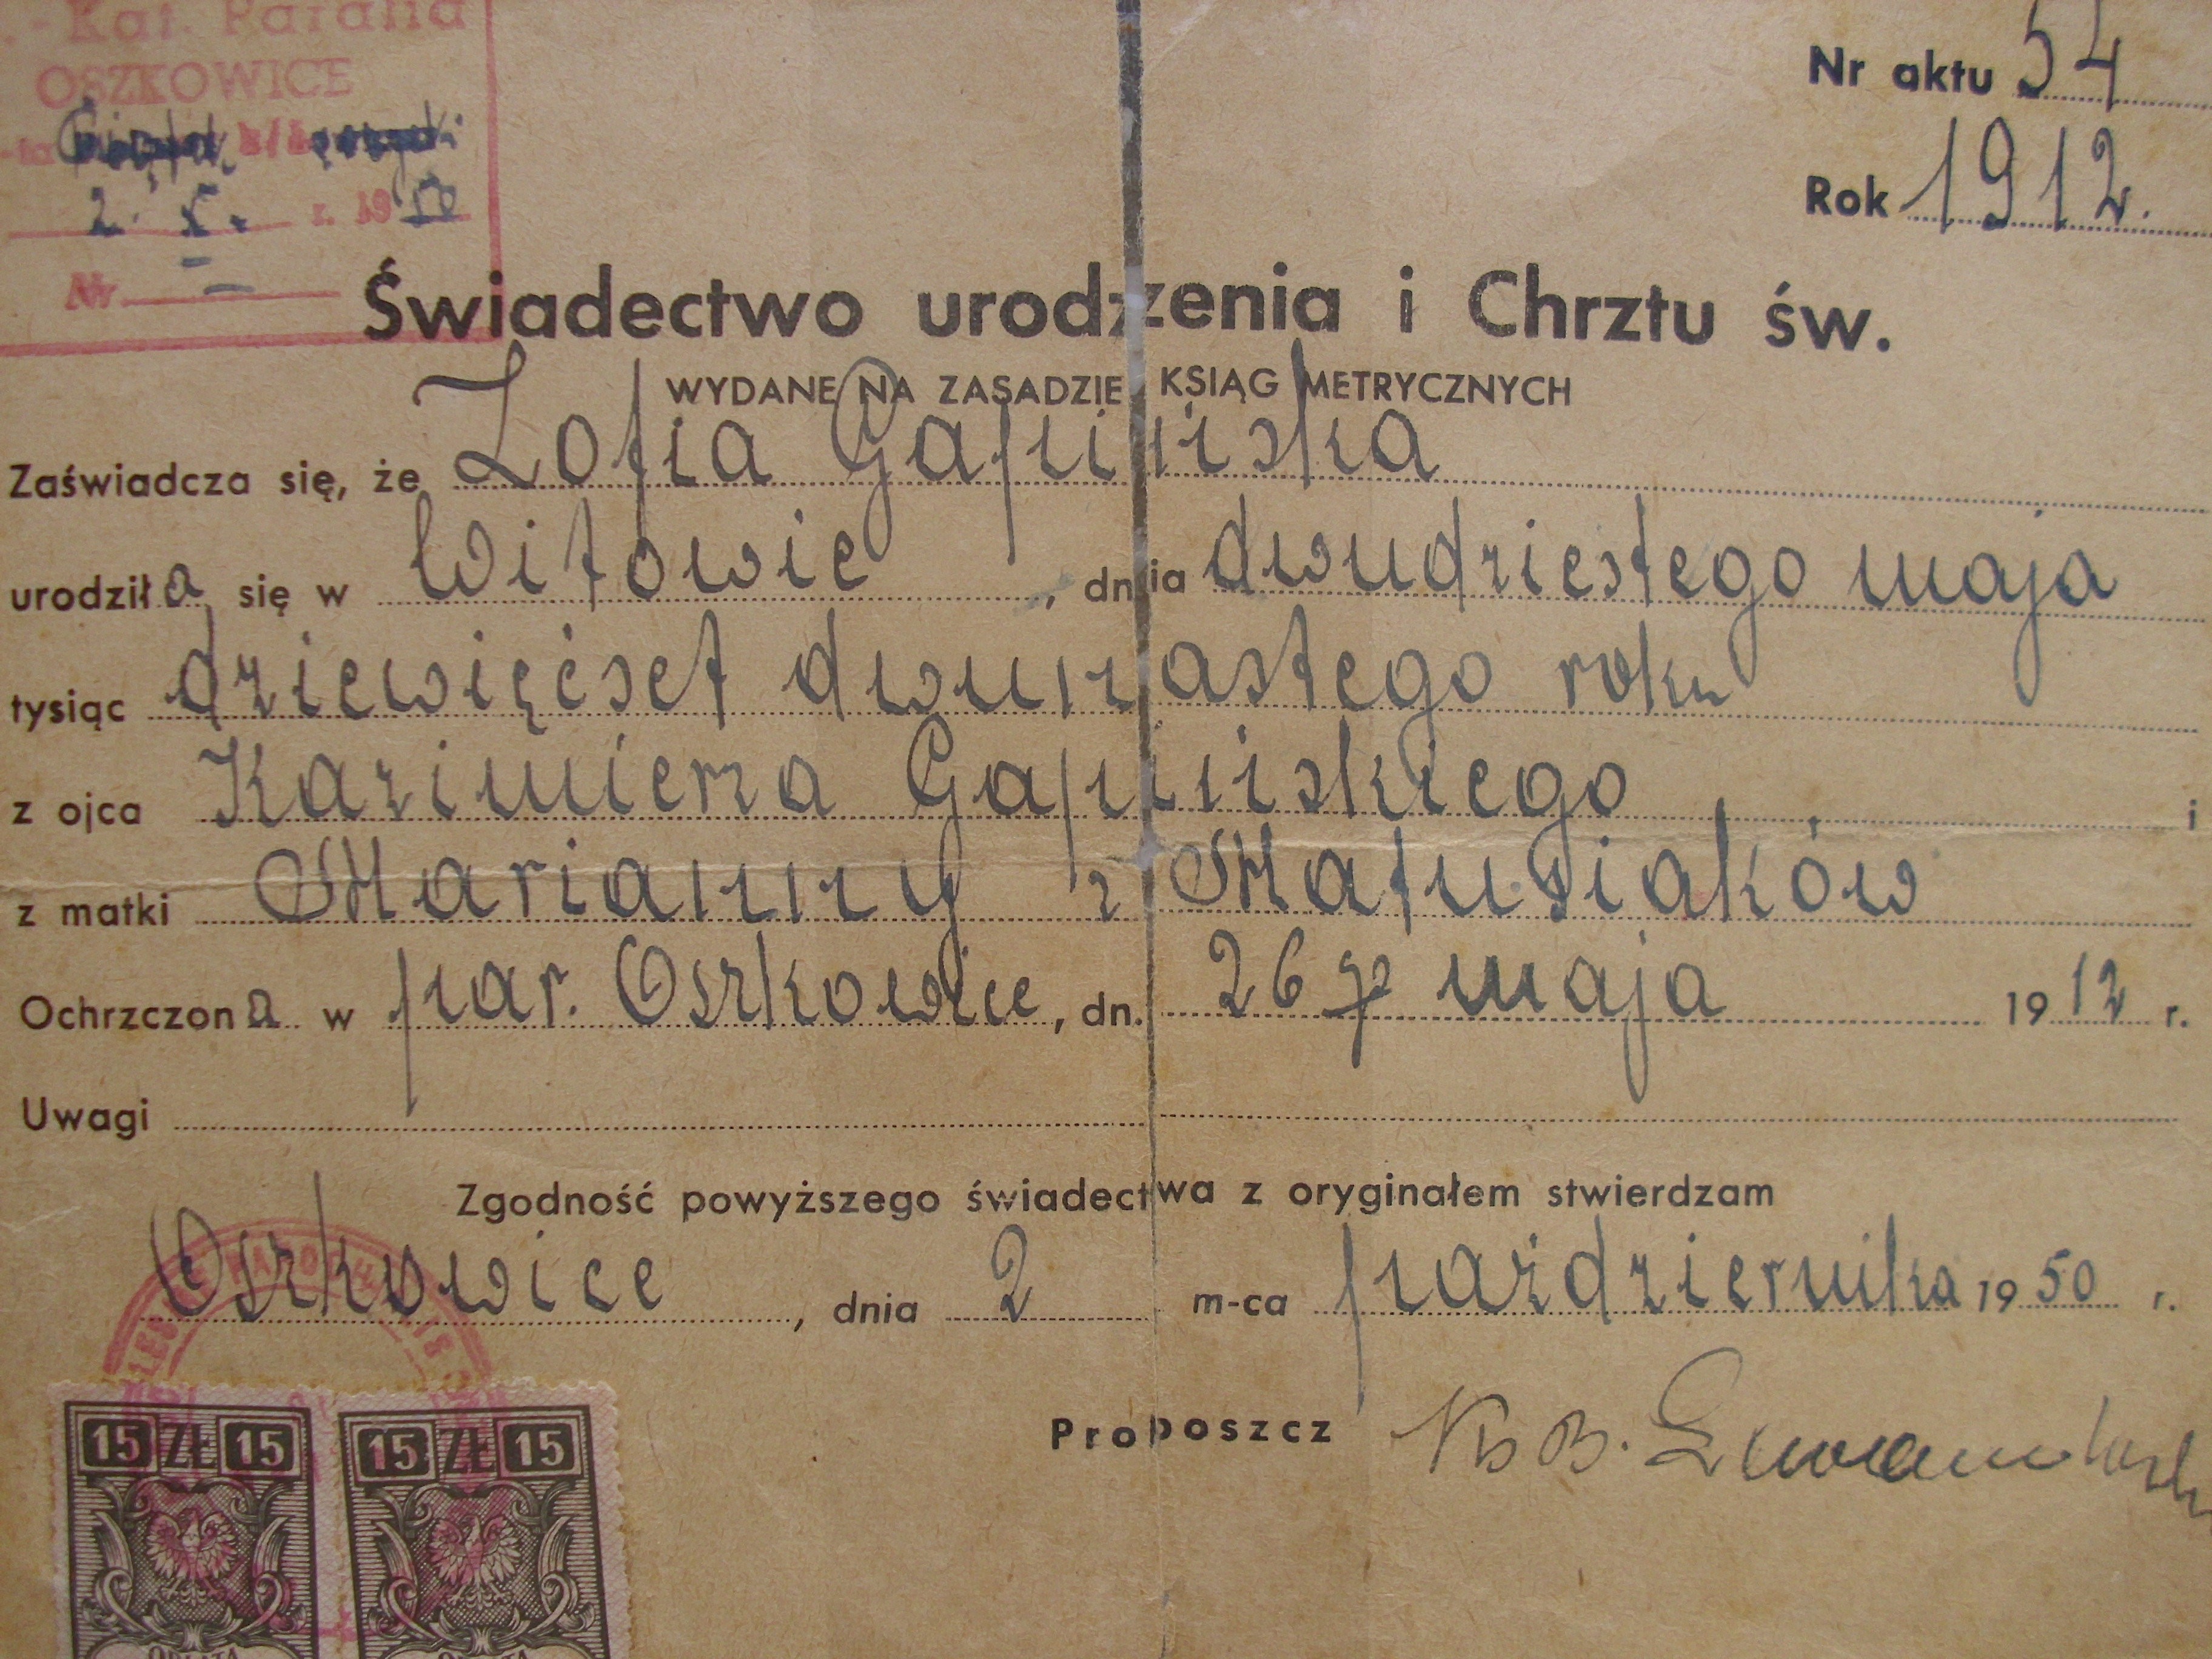 .-Kat. Parafia
OSZKOWICE
2. 5. r. 1950
Nr —
Nr aktu 54
Rok 1912.
Świadectwo urodzenia i Chrztu św.
WYDANE NA ZASADZIE KSIĄG METRYCZNYCH
Zaświadcza się, że Zofia Gapińska
urodziła się w Witowie, dnia dwudziestego maja
tysiąc dziewięćset dwunastego roku
z ojca Kazimierza Gapińskiego i
z matki Marianny z Matusiaków
Ochrzczona w par. Oszkowice, dn. 26 go maja 1912 r.
Uwagi
Zgodność powyższego świadectwa z oryginałem stwierdzam
Oszkowice, dnia 2 m-ca października 1950 r.
Proboszcz Ks B.
15 ZŁ 15 15 ZŁ 15